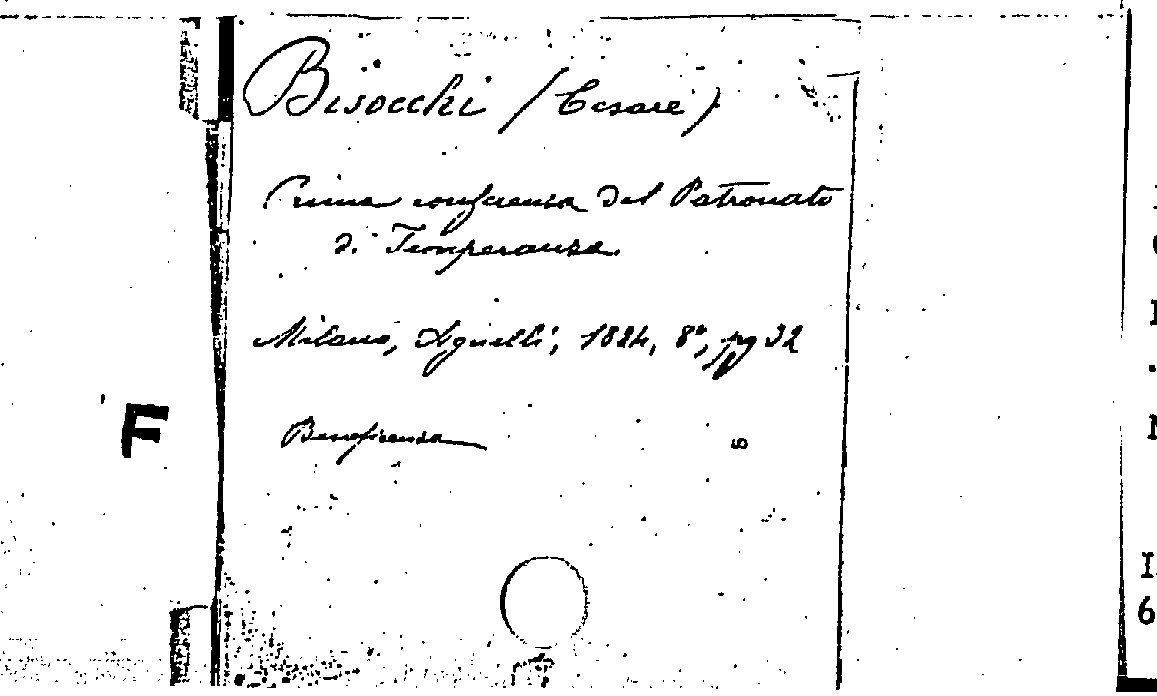 Bisocchi (Cesare)
Prima conferenza del Patronato
di Temperanza
Milano, Agnelli, 1894, 8°, pg 32
Beneficenza
F
I
6